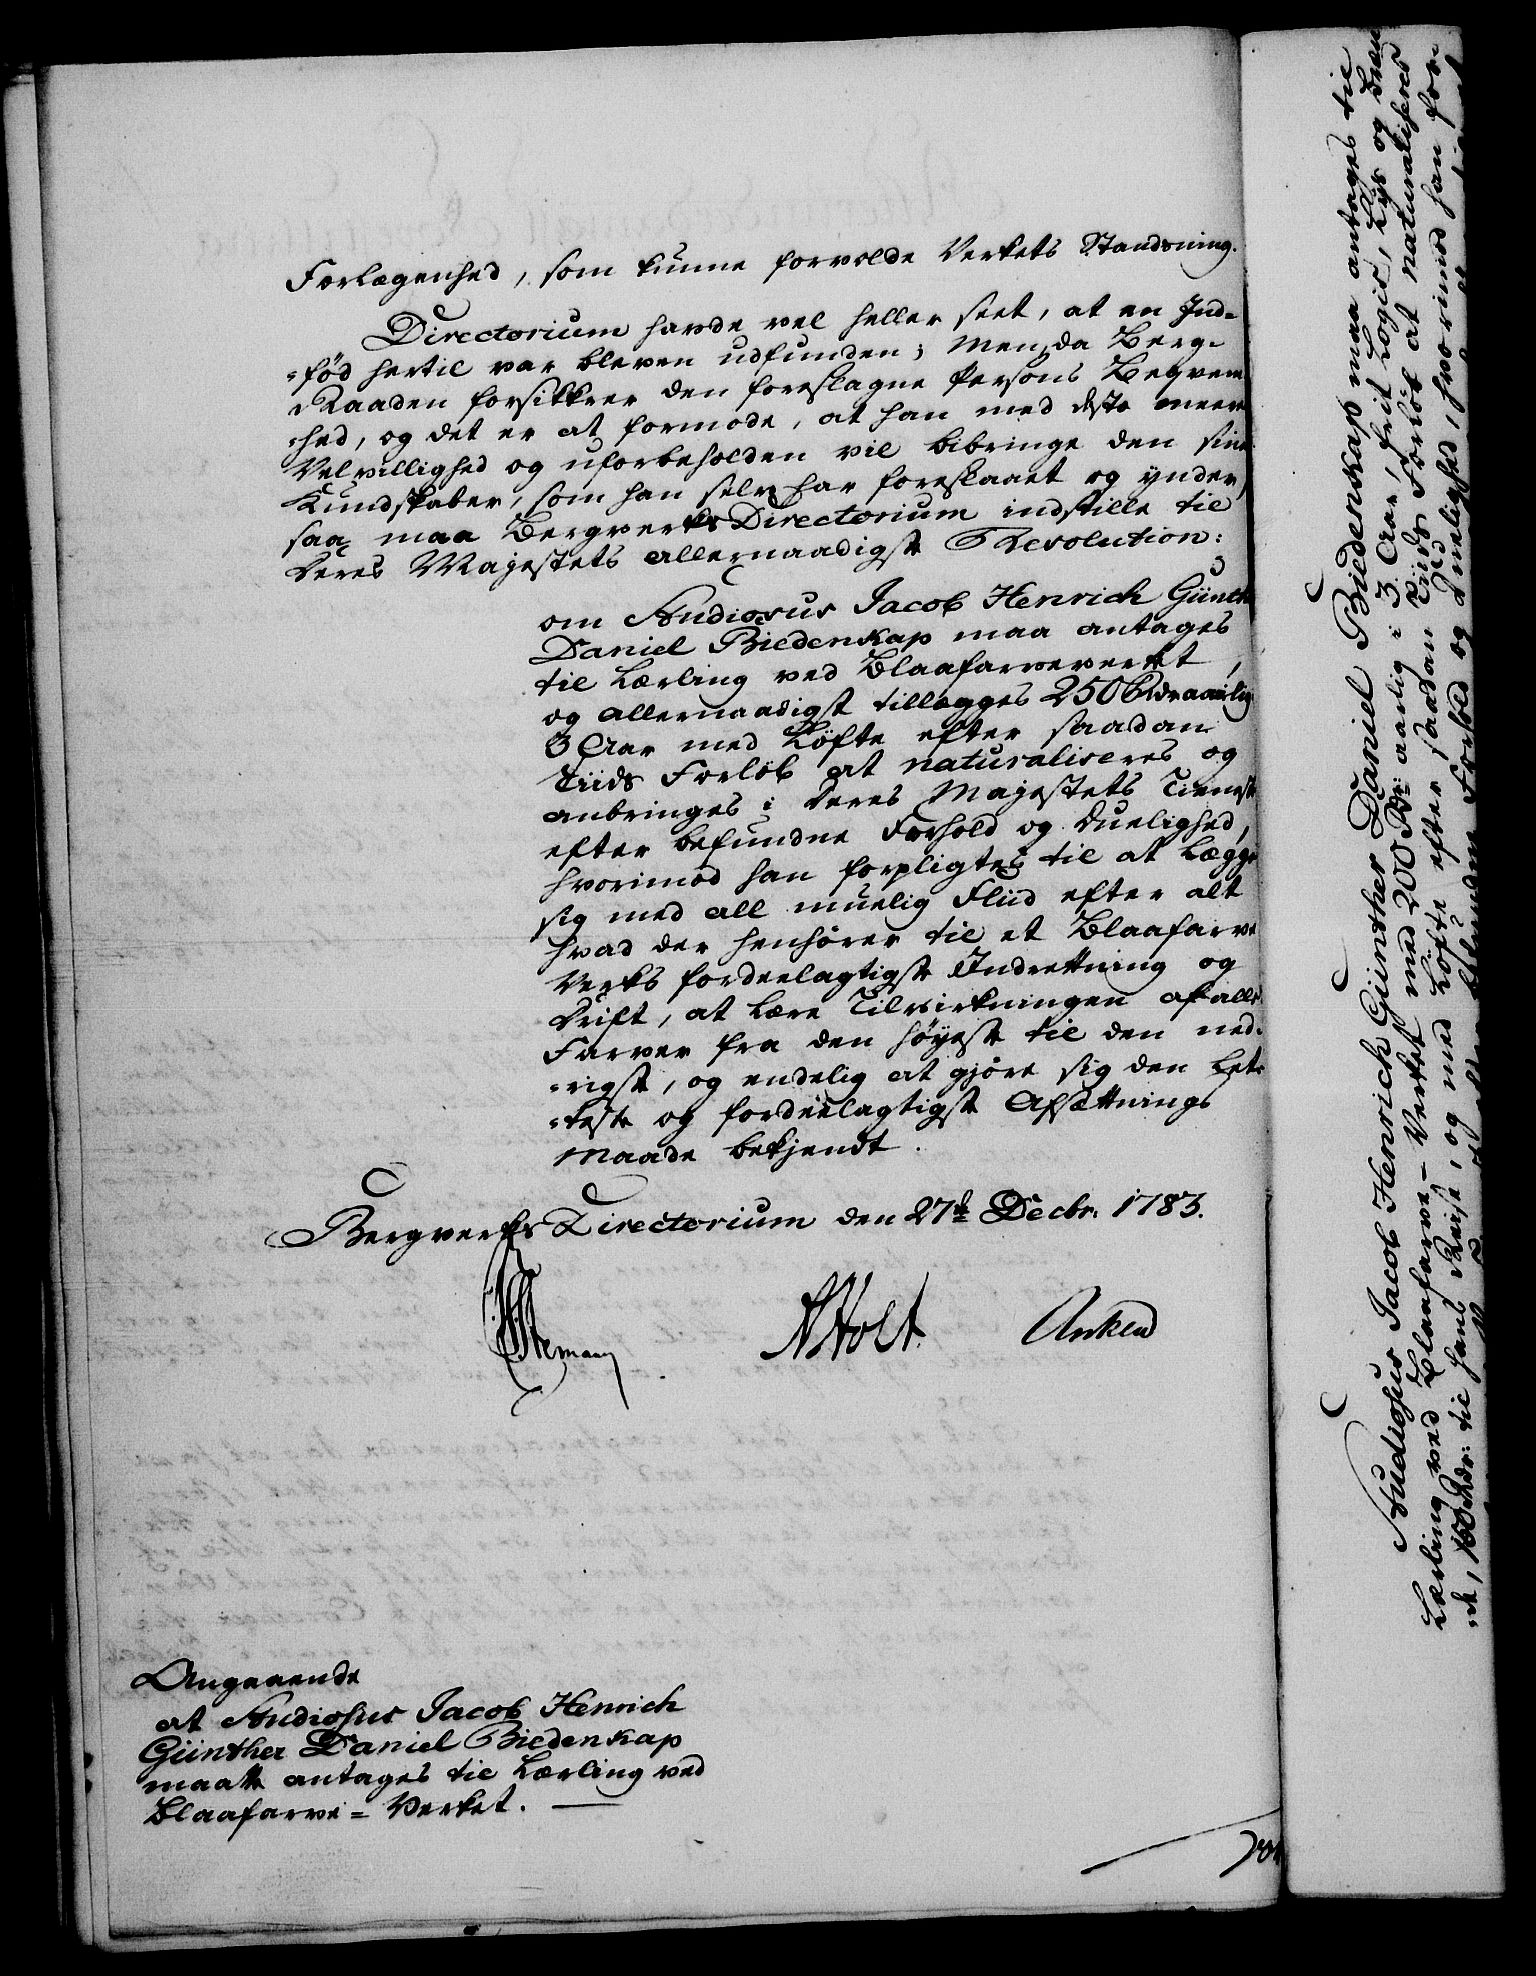 Forlægenhed, som kunne forvolde Verkets Standsning.
Directorium havde vel heller seet, at en Ind=
=fød hertil var bleven udfunden; Men, da Berg=
Raaden forsikkrer den foreslagne Persons Beqvem
=hed, og det er at formode, at han med desto meere
Velvillighed og uforbeholden vil bibringe den sine
Kundskaber, som han selv har foreslaaet og ynder,
saa maa Bergverks Directorium indstille til
Deres Majestets allernaadigste Resolution:
om Studiosus Jacob Henrich Günth
Daniel Biedenkap maa antages
til Lærling ved Blaafarveverket,
og allernaadigst tillægges 250 Rdr aarlig
3 Aar med Løfte efter saadan
Tiids Forløb at naturaliseres og
anbringes i Deres Majestets Tieneste
efter befundne Forhold og Duelighed,
hvorimod han forpligtes til at lægge
sig med all muelig Fliid efter alt
hvad der henhører til et Blaafarve
Verks fordeelagtigste Indrettning og
Drift, at lære Tilvirkningen af alle
Farver fra den høyeste til den ned=
=rigste, og endelig at gjøre sig den let=
=teste og fordeelagtigste Afsættnings
Maade bekjendt.
Bergverks Directorium den 27de Decbr. 1783.
Stemann
Holt
Anker
Angaaende
at Studiosus Jacob Henrich
Günther Daniel Biedenkap
maatte antages til Lærling ved
Blaafarve=Verket.
Studiosus Jacob Henrich Günther Daniel Biedenkap maa antages til
Lærling ved Blaafarve=Verket med 200 Rdr aarlig i 3 Aar, frit Logis, Lys og Bræn
=de, 150 Rdr: til hans Reise, og med Løfte efter saadan Tiids Forløb at naturaliseres
Forhold og Duelighed, hvorimod han for